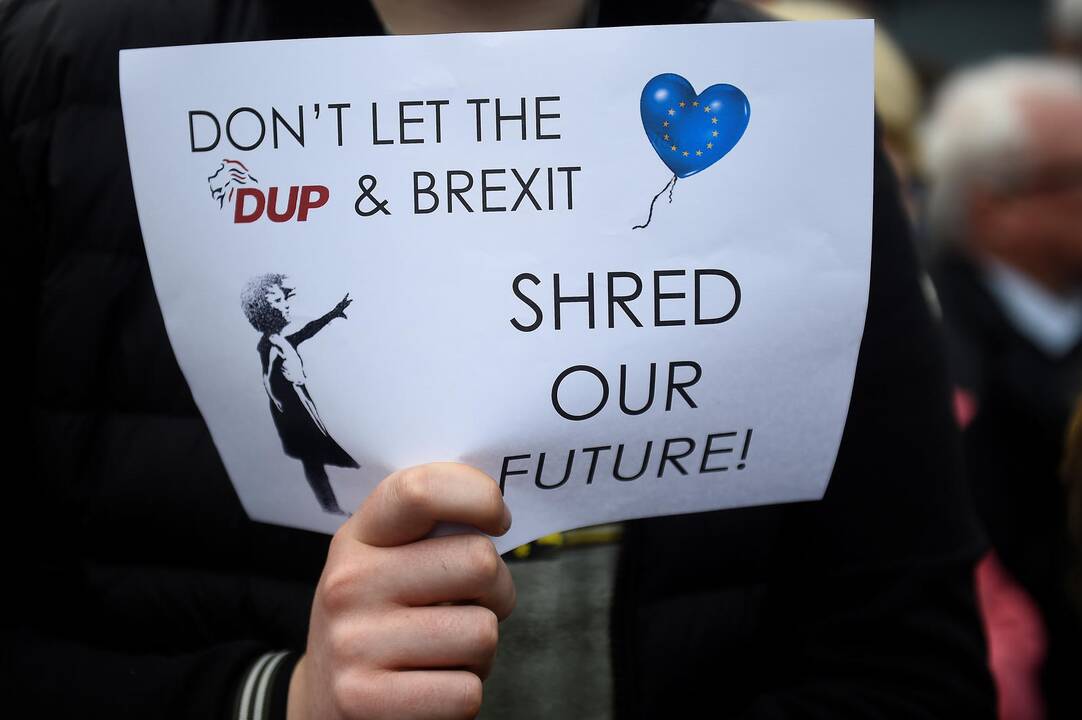 DON'T LET THE
DUP & BREXIT
SHRED
OUR
FUTURE!